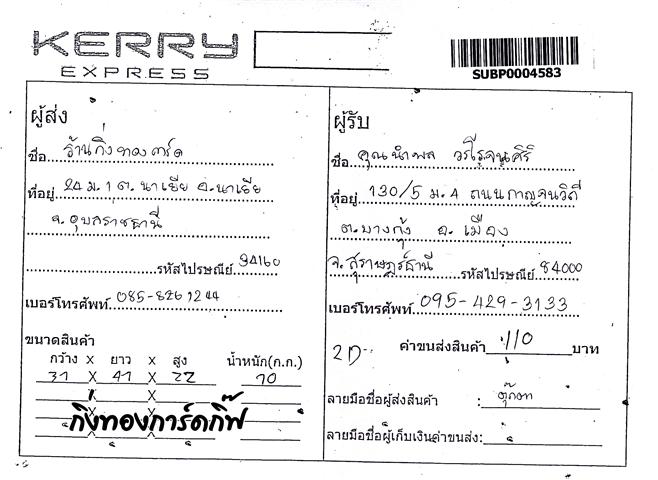 KERRY
EXPRESS
SUBP0004583
ผู้ส่ง
ชื่อ ร้านกิ่งทองการ์ด
ที่อยู่ 24 ม.1 ต.นาเยีย อ.นาเยีย
จ.อุบลราชธานี
รหัสไปรษณีย์ 34160
เบอร์โทรศัพท์ 085-826 1244
ขนาดสินค้า
กว้าง x ยาว x สูง น้ำหนัก(ก.ก.)
31 X 41 X 22 10
X X
X X
กิ่งทองการ์ดกิ๊ฟ
X X
ผู้รับ
ชื่อ คุณนำพล วรโรจนศิริ
ที่อยู่ 130/5 ม.4 ถนนกาญจนวิถี
ต.บางกุ้ง อ.เมือง
จ.สุราษฎร์ธานี รหัสไปรษณีย์ 84000
เบอร์โทรศัพท์ 095-429-3133
2D ค่าขนส่งสินค้า 110 บาท
ลายมือชื่อผู้ส่งสินค้า :
ลายมือชื่อผู้เก็บเงินค่าขนส่ง: